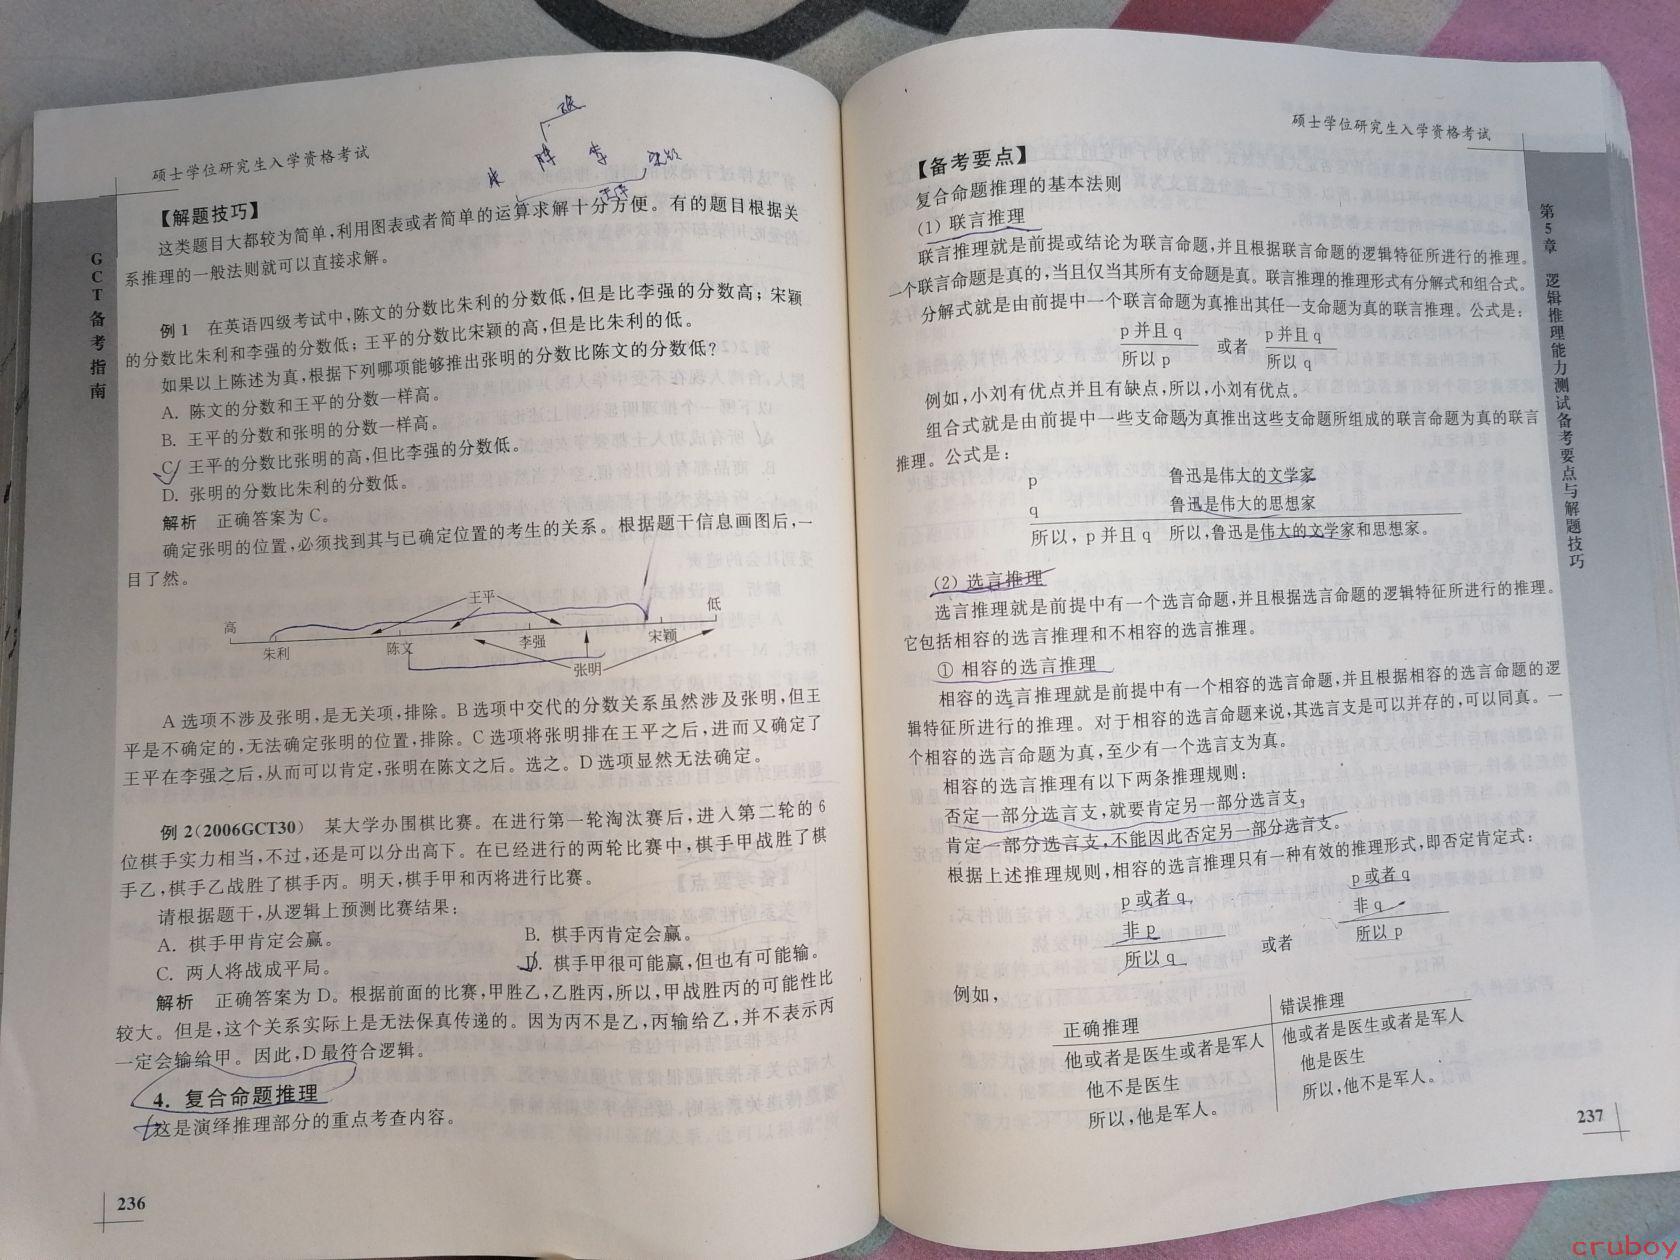 硕士学位研究生入学资格考试
GCT备考指南
【解题技巧】
这类题目大都较为简单,利用图表或者简单的运算求解十分方便。有的题目根据关
系推理的一般法则就可以直接求解。
例 1 在英语四级考试中,陈文的分数比朱利的分数低,但是比李强的分数高；宋颖
的分数比朱利和李强的分数低；王平的分数比宋颖的高,但是比朱利的低。
如果以上陈述为真,根据下列哪项能够推出张明的分数比陈文的分数低?
A. 陈文的分数和王平的分数一样高。
B. 王平的分数和张明的分数一样高。
C. 王平的分数比张明的高,但比李强的分数低。
D. 张明的分数比朱利的分数低。
解析 正确答案为 C。
确定张明的位置,必须找到其与已确定位置的考生的关系。根据题干信息画图后,一
目了然。
高 王平 低
朱利 陈文 李强 宋颖
张明
A 选项不涉及张明,是无关项,排除。B 选项中交代的分数关系虽然涉及张明,但王
平是不确定的,无法确定张明的位置,排除。C 选项将张明排在王平之后,进而又确定了
王平在李强之后,从而可以肯定,张明在陈文之后。选之。D 选项显然无法确定。
例 2(2006GCT30) 某大学办围棋比赛。在进行第一轮淘汰赛后,进入第二轮的 6
位棋手实力相当,不过,还是可以分出高下。在已经进行的两轮比赛中,棋手甲战胜了棋
手乙,棋手乙战胜了棋手丙。明天,棋手甲和丙将进行比赛。
请根据题干,从逻辑上预测比赛结果:
A. 棋手甲肯定会赢。 B. 棋手丙肯定会赢。
C. 两人将战成平局。 D. 棋手甲很可能赢,但也有可能输。
解析 正确答案为 D。根据前面的比赛,甲胜乙,乙胜丙,所以,甲战胜丙的可能性比
较大。但是,这个关系实际上是无法保真传递的。因为丙不是乙,丙输给乙,并不表示丙
一定会输给甲。因此,D 最符合逻辑。
4. 复合命题推理
这是演绎推理部分的重点考查内容。
236
硕士学位研究生入学资格考试
第5章 逻辑推理能力测试备考要点与解题技巧
【备考要点】
复合命题推理的基本法则
(1) 联言推理
联言推理就是前提或结论为联言命题,并且根据联言命题的逻辑特征所进行的推理。
一个联言命题是真的,当且仅当其所有支命题是真。联言推理的推理形式有分解式和组合式。
分解式就是由前提中一个联言命题为真推出其任一支命题为真的联言推理。公式是:
p 并且 q 或者 p 并且 q
所以 p 所以 q
例如,小刘有优点并且有缺点,所以,小刘有优点。
组合式就是由前提中一些支命题为真推出这些支命题所组成的联言命题为真的联言
推理。公式是:
p 鲁迅是伟大的文学家
q 鲁迅是伟大的思想家
所以, p 并且 q 所以,鲁迅是伟大的文学家和思想家。
(2) 选言推理
选言推理就是前提中有一个选言命题,并且根据选言命题的逻辑特征所进行的推理。
它包括相容的选言推理和不相容的选言推理。
① 相容的选言推理
相容的选言推理就是前提中有一个相容的选言命题,并且根据相容的选言命题的逻
辑特征所进行的推理。对于相容的选言命题来说,其选言支是可以并存的,可以同真。一
个相容的选言命题为真,至少有一个选言支为真。
相容的选言推理有以下两条推理规则:
否定一部分选言支,就要肯定另一部分选言支。
肯定一部分选言支,不能因此否定另一部分选言支。
根据上述推理规则,相容的选言推理只有一种有效的推理形式,即否定肯定式:
p 或者 q p 或者 q
非 p 或者 非 q
所以 q 所以 p
例如,
正确推理 错误推理
他或者是医生或者是军人 他或者是医生或者是军人
他不是医生 他是医生
所以,他是军人。 所以,他不是军人。
237
cruboy